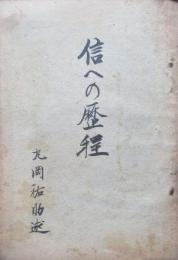 信への歷程
丸岡祐助述